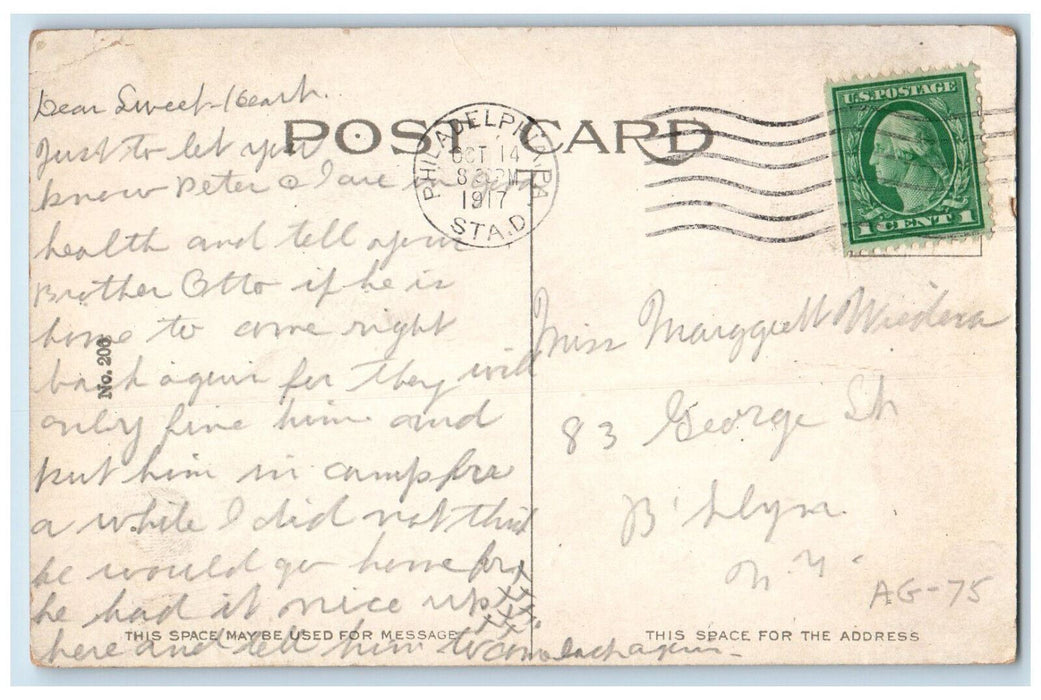 POST CARD
PHILADELPHIA, PA
OCT 14
8 PM
1917
STA. D
U.S. POSTAGE
1 CENT 1
Dear Sweet-Heart.
Just to let you
know Peter & I are in
health and tell your
Brother Otto if he is
home to come right
back again for they will
only fine him and
put him in camp for
a while I did not think
he would go home for
he had it nice up
here and tell him to come back again -
xx
xxx
xx
No. 208
THIS SPACE MAY BE USED FOR MESSAGE
Miss Marggrett
83 George St
B'klyn
N.Y.
AG-75
THIS SPACE FOR THE ADDRESS